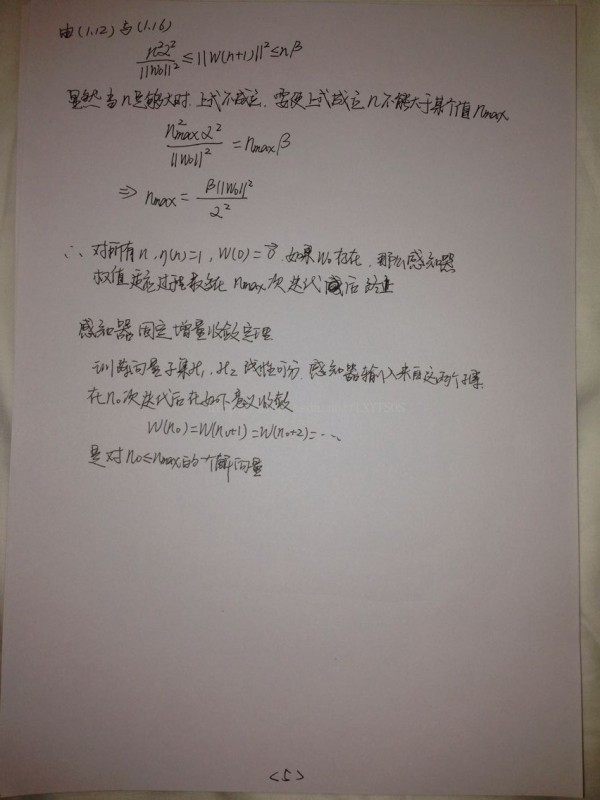 由(1.12)与(1.16)
n²α²/||W₀||² ≤ ||W(n+1)||² ≤ nβ
显然当n足够大时,上式不成立.要使上式成立n不能大于某个值nmax
n²max α²/||W₀||² = nmax β
⇒ nmax = β||W₀||²/α²
∴ 对所有n,η(n)=1, W(0)=0⃗.如果W₀存在,那么感知器
权值适应过程最多在nmax次迭代后终止
感知器固定增量收敛定理
训练向量子集H₁,H₂线性可分.感知器输入来自这两个子集
在n₀次迭代后在如下意义收敛
W(n₀)=W(n₀+1)=W(n₀+2)=…
是对n₀≤nmax的一个解向量
<5>